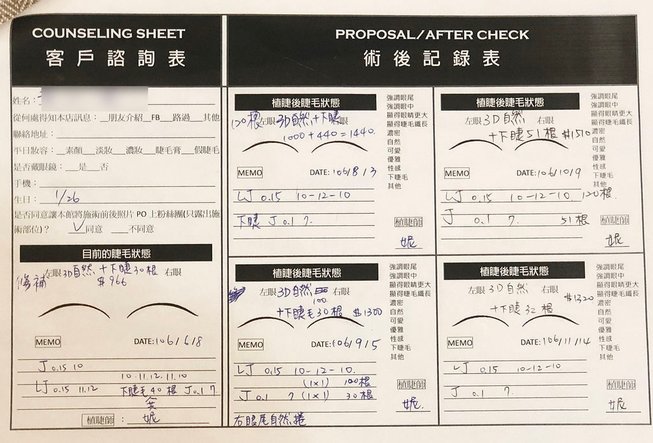 COUNSELING SHEET
客戶諮詢表
姓名:
從何處得知本店訊息:__朋友介紹__FB__路過__其他
聯絡地址:
平日妝容:__素顏__淡妝__濃妝__睫毛膏__假睫毛
是否戴眼鏡:__是__否
手機:
生日: 1/26
是否同意讓本館將施術前後照片 PO 上粉絲團(只露出施
術部位)? ✓同意 __不同意
目前的睫毛狀態
修補 左眼 3D自然 + 下睫30根 右眼
$966
MEMO DATE: 106/6/18
J 0.15 10
10.11.12.11.10
LJ 0.15 11.12 下睫毛40根 J 0.1 7
植睫師 妮
PROPOSAL/AFTER CHECK
術後記錄表
植睫後睫毛狀態
120根 左眼 3D自然 + 下睫 右眼
1000+440=1440
MEMO DATE: 106/8/3
LJ 0.15 10-12-10
下睫 J 0.1 7.
強調眼尾
強調眼中
顯得眼睛更大
顯得睫毛纖長
濃密
自然
可愛
優雅
性感
下睫毛
其他
植睫師
妮
植睫後睫毛狀態
左眼 3D自然 右眼
+ 下睫51根 $1510
MEMO DATE: 106/10/9
LJ 0.15 10-12-10 120根
J 0.1 7 51根
強調眼尾
強調眼中
顯得眼睛更大
顯得睫毛纖長
濃密
自然
可愛
優雅
性感
下睫毛
其他
植睫師
妮
植睫後睫毛狀態
左眼 3D自然 右眼
100
+下睫毛30根 $1300
MEMO DATE: 106/9/5
LJ 0.15 10-12-10.
(1x1) 100根
J 0.1 7 (1x1) 30根
右眼尾自然捲
強調眼尾
強調眼中
顯得眼睛更大
顯得睫毛纖長
濃密
自然
可愛
優雅
性感
下睫毛
其他
植睫師
妮
植睫後睫毛狀態
左眼 3D自然 右眼
+下睫 32根 $1320
MEMO DATE: 106/11/14
LJ 0.15 10-12-10
J 0.1 7.
強調眼尾
強調眼中
顯得眼睛更大
顯得睫毛纖長
濃密
自然
可愛
優雅
性感
下睫毛
其他
植睫師
妮